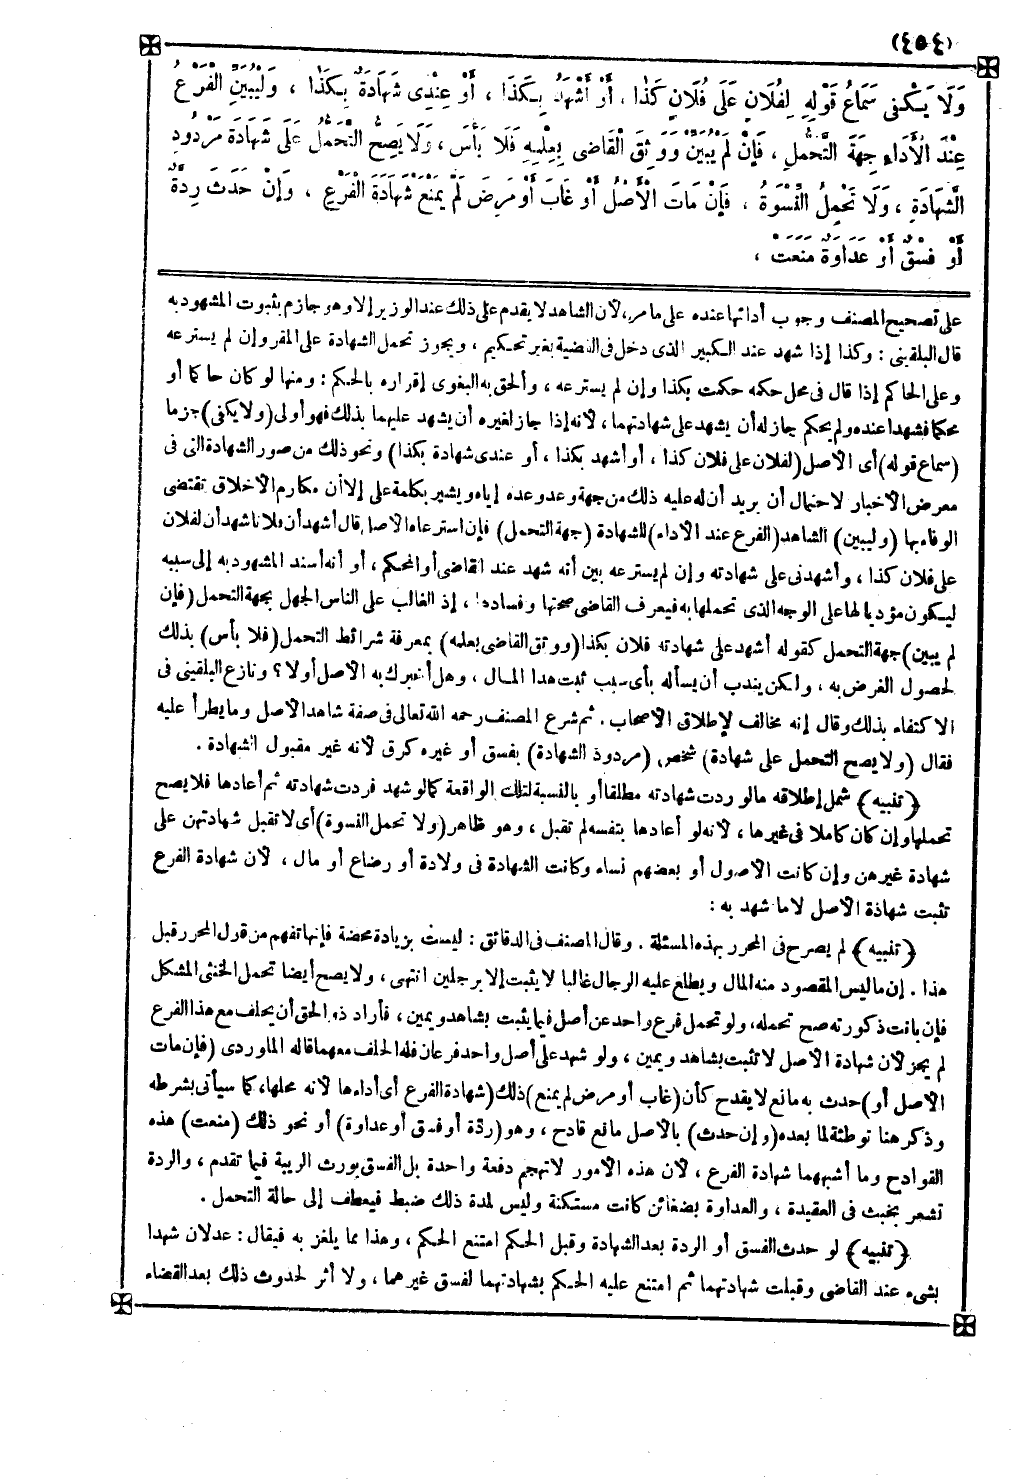 (٤٥٤)
وَلَا يَكْفِى سَمَاعُ قَوْلِهِ لِفُلَانٍ عَلَى فُلَانٍ كَذَا ، أَوْ أَشْهَدُ بِكَذَا ، أَوْ عِنْدِى شَهَادَةٌ بِكَذَا ، وَلْيُبَيِّنِ الْفَرْعُ
عِنْدَ الْأَدَاءِ جِهَةَ التَّحَمُّلِ ، فَإِنْ لَمْ يُبَيِّنْ وَوَثِقَ الْقَاضِى بِعِلْمِهِ فَلَا بَأْسَ ، وَلَا يَصِحُّ التَّحَمُّلُ عَلَى شَهَادَةِ مَرْدُودِ
الشَّهَادَةِ ، وَلَا تَحَمُّلُ النِّسْوَةِ ، فَإِنْ مَاتَ الْأَصْلُ أَوْ غَابَ أَوْ مَرِضَ لَمْ يَمْنَعْ شَهَادَةَ الْفَرْعِ ، وَإِنْ حَدَثَ رِدَّةٌ
أَوْ فِسْقٌ أَوْ عَدَاوَةٌ مَنَعَتْ ،
على تصحيح المصنف وجوب أدائها عنده على مامر، لأن الشاهد لا يقدم على ذلك عند الوزير إلا وهو جازم بثبوت المشهود به
قال البلقينى : وكذا إذا شهد عند الكبير الذى دخل فى القضية بغير تحكيم ، ويجوز تحمل الشهادة على المقر وإن لم يسترعه
وعلى الحاكم إذا قال فى محل حكمه حكمت بكذا وإن لم يسترعه ، وألحق به البغوى إقراره بالحكم : ومنها لو كان حاكما أو
محكما فشهدا عنده ولم يحكم جاز له أن يشهد على شهادتهما ، لأنه إذا جاز لغيره أن يشهد عليهما بذلك فهو أولى (ولا يكفى) جزما
(سماع قوله) أى الأصل (لفلان على فلان كذا ، أو أشهد بكذا ، أو عندى شهادة بكذا) ونحو ذلك من صور الشهادة التى فى
معرض الأخبار لاحتمال أن يريد أن له عليه ذلك من جهة وعد وعده إياه ويشير بكلمة على إلا أن مكارم الأخلاق تقتضى
الوفاء بها (وليبين) الشاهد (الفرع عند الأداء) للشهادة (جهة التحمل) فإن استرعاه الأصل قال أشهد أن فلانا شهد أن لفلان
على فلان كذا ، وأشهدنى على شهادته وإن لم يسترعه بين أنه شهد عند القاضى أو المحكم ، أو أنه أسند المشهود به إلى سببه
ليكون مؤديا لها على الوجه الذى تحملها به فيعرف القاضى صحتها وفسادها ، إذ الغالب على الناس الجهل بجهة التحمل (فإن
لم يبين) جهة التحمل كقوله أشهد على شهادته فلان بكذا (ووثق القاضى بعلمه) بمعرفة شرائط التحمل (فلا بأس) بذلك
لحصول الغرض به ، ولكن يندب أن يسأله بأى سبب ثبت هذا المال ، وهل أخبرك به الأصل أولا ؟ ونازع البلقينى فى
الاكتفاء بذلك وقال إنه مخالف لإطلاق الأصحاب . ثم شرع المصنف رحمه الله تعالى فى صفة شاهد الأصل وما يطرأ عليه
فقال (ولا يصح التحمل على شهادة) شخص (مردود الشهادة) بفسق أو غيره كرق لأنه غير مقبول الشهادة .
﴿تنبيه﴾ شمل إطلاقه مالو ردت شهادته مطلقا أو بالنسبة لتلك الواقعة كما لو شهد فردت شهادته ثم أعادها فلا يصح
تحملها وإن كان كاملا فى غيرها ، لأنه لو أعادها بنفسه لم تقبل ، وهو ظاهر (ولا تحمل النسوة) أى لا تقبل شهادتهن على
شهادة غيرهن وإن كانت الأصول أو بعضهم نساء وكانت الشهادة فى ولادة أو رضاع أو مال ، لأن شهادة الفرع
تثبت شهادة الأصل لا ما شهد به :
﴿تنبيه﴾ لم يصرح فى المحرر بهذه المسئلة . وقال المصنف فى الدقائق : ليست بزيادة محضة فإنها تفهم من قول المحرر قبل
هذا . إن ما ليس المقصود منه المال ويطلع عليه الرجال غالبا لا يثبت إلا برجلين انتهى ، ولا يصح أيضا تحمل الخنثى المشكل
فإن بانت ذكورته صح تحمله، ولو تحمل فرع واحد عن أصل فيما يثبت بشاهد ويمين ، فأراد ذو الحق أن يحلف مع هذا الفرع
لم يجز لأن شهادة الأصل لا تثبت بشاهد ويمين ، ولو شهد على أصل واحد فرعان فله الحلف معهما قاله الماوردى (فإن مات
الأصل أو) حدث به مانع لا يقدح كأن (غاب أو مرض لم يمنع) ذلك (شهادة الفرع) أى أداءها لأنه محلها، كما سيأتى بشرطه
وذكر هنا توطئة لما بعده (وإن حدث) بالأصل مانع قادح ، وهو (ردّة أو فسق أو عداوة) أو نحو ذلك (منعت) هذه
القوادح وما أشبهها شهادة الفرع ، لأن هذه الأمور لا تهجم دفعة واحدة بل الفسق يورث الريبة فيما تقدم ، والردة
تشعر بخبث فى العقيدة ، والعداوة بضغائن كانت مستكنة وليس لمدة ذلك ضبط فيعطف إلى حالة التحمل .
﴿تنبيه﴾ لو حدث الفسق أو الردة بعد الشهادة وقبل الحكم امتنع الحكم ، وهذا مما يلغز به فيقال : عدلان شهدا
بشىء عند القاضى وقبلت شهادتهما ثم امتنع عليه الحكم بشهادتهما لفسق غيرهما ، ولا أثر لحدوث ذلك بعد القضاء